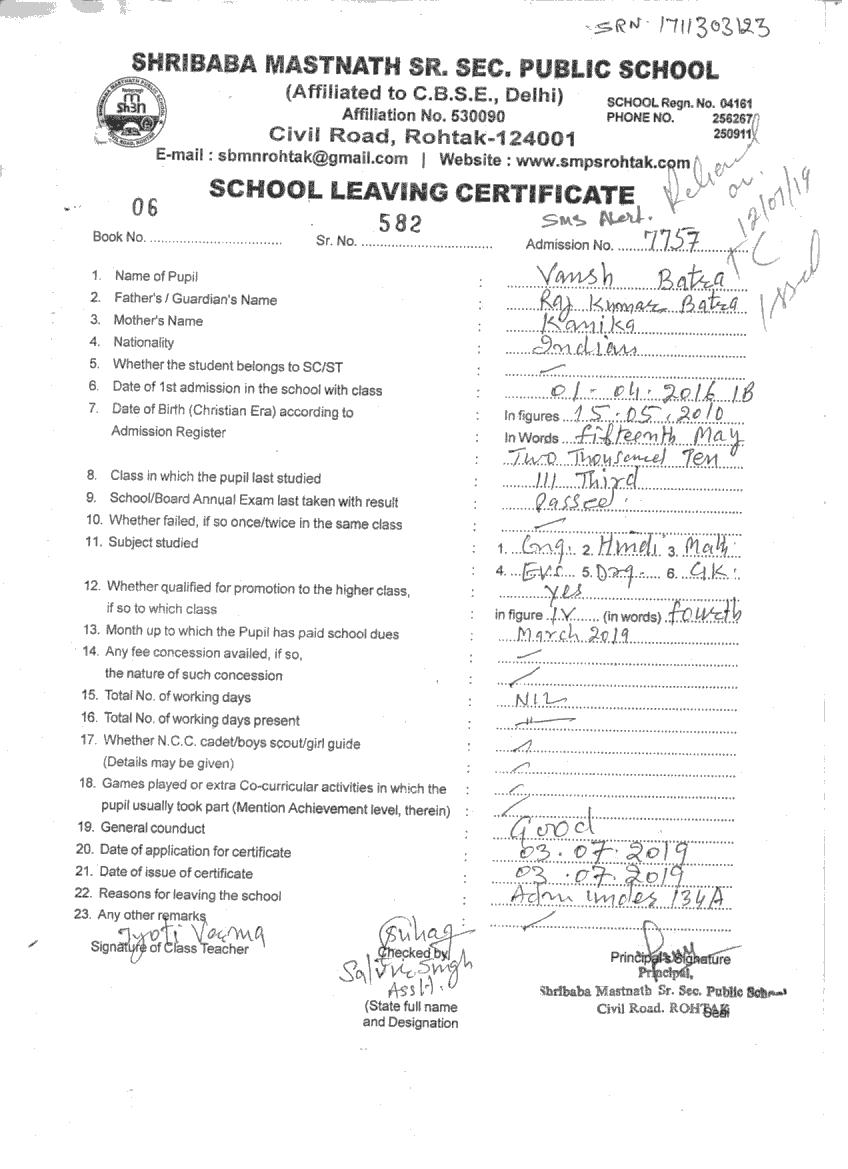 SRN. 1711303123
SHRIBABA MASTNATH SR. SEC. PUBLIC SCHOOL
(Affiliated to C.B.S.E., Delhi)
Affiliation No. 530090
SCHOOL Regn. No. 04161
PHONE NO. 256267
250911
Civil Road, Rohtak-124001
E-mail : sbmnrohtak@gmail.com | Website : www.smpsrohtak.com
SCHOOL LEAVING CERTIFICATE
on.
12/07/19
TC
Issued
SMS Alert.
Book No. 06 Sr. No. 582 Admission No. 7757
1. Name of Pupil : Vansh Batra
2. Father's / Guardian's Name : Raj Kumar Batra
3. Mother's Name : Kanika
4. Nationality : Indian
5. Whether the student belongs to SC/ST :
6. Date of 1st admission in the school with class : 01-04.2016 IB
7. Date of Birth (Christian Era) according to : In figures 15.05.2010
Admission Register : In Words fifteenth May
: Two Thousand Ten
8. Class in which the pupil last studied : III Third
9. School/Board Annual Exam last taken with result : Passed.
10. Whether failed, if so once/twice in the same class :
11. Subject studied : 1. Eng. 2. Hindi 3. Math
4. EVS 5. Drg. 6. G.K.
12. Whether qualified for promotion to the higher class, : yes
if so to which class : in figure IV (in words) fourth
13. Month up to which the Pupil has paid school dues : March 2019
14. Any fee concession availed, if so, :
the nature of such concession :
15. Total No. of working days : NIL
16. Total No. of working days present : "
17. Whether N.C.C. cadet/boys scout/girl guide :
(Details may be given) :
18. Games played or extra Co-curricular activities in which the :
pupil usually took part (Mention Achievement level, therein) :
19. General counduct : Good
20. Date of application for certificate : 03.07.2019
21. Date of issue of certificate : 03.07.2019
22. Reasons for leaving the school : Adm under 134A
23. Any other remarks :
Jyoti Verma
Signature of Class Teacher
Checked by
Singh
Asstt.
(State full name
and Designation
Principal's Signature
Principal,
Shribaba Mastnath Sr. Sec. Public School
Civil Road. ROHTAK
Seal